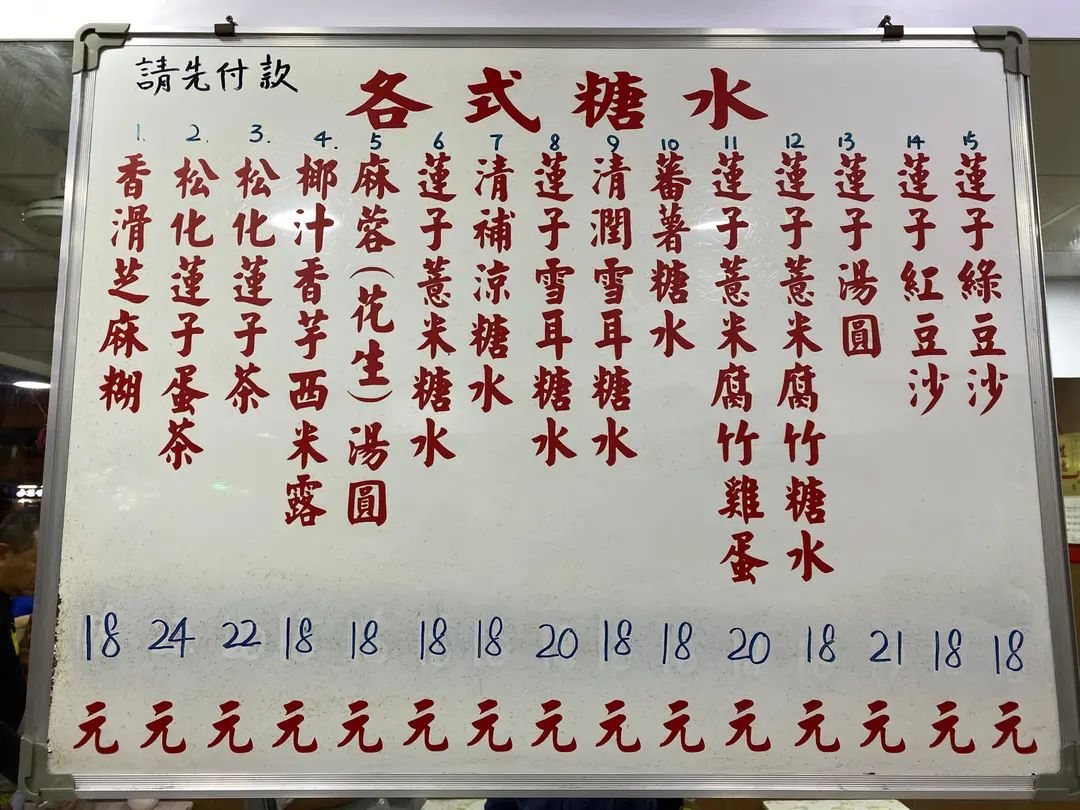 請先付款
各式糖水
1.
香滑芝麻糊
18
元
2.
松化蓮子蛋茶
24
元
3.
松化蓮子茶
22
元
4.
椰汁香芋西米露
18
元
5
麻蓉(花生)湯圓
18
元
6
蓮子薏米糖水
18
元
7
清補涼糖水
18
元
8
蓮子雪耳糖水
20
元
9
清潤雪耳糖水
18
元
10
蕃薯糖水
18
元
11
蓮子薏米腐竹雞蛋
20
元
12
蓮子薏米腐竹糖水
18
元
13
蓮子湯圓
21
元
14
蓮子紅豆沙
18
元
15
蓮子綠豆沙
18
元